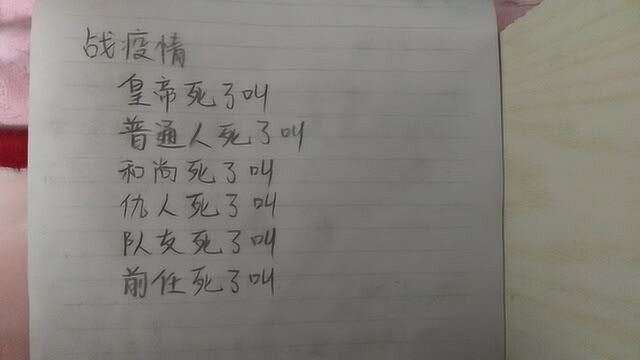 战疫情
皇帝死了叫
普通人死了叫
和尚死了叫
仇人死了叫
队友死了叫
前任死了叫